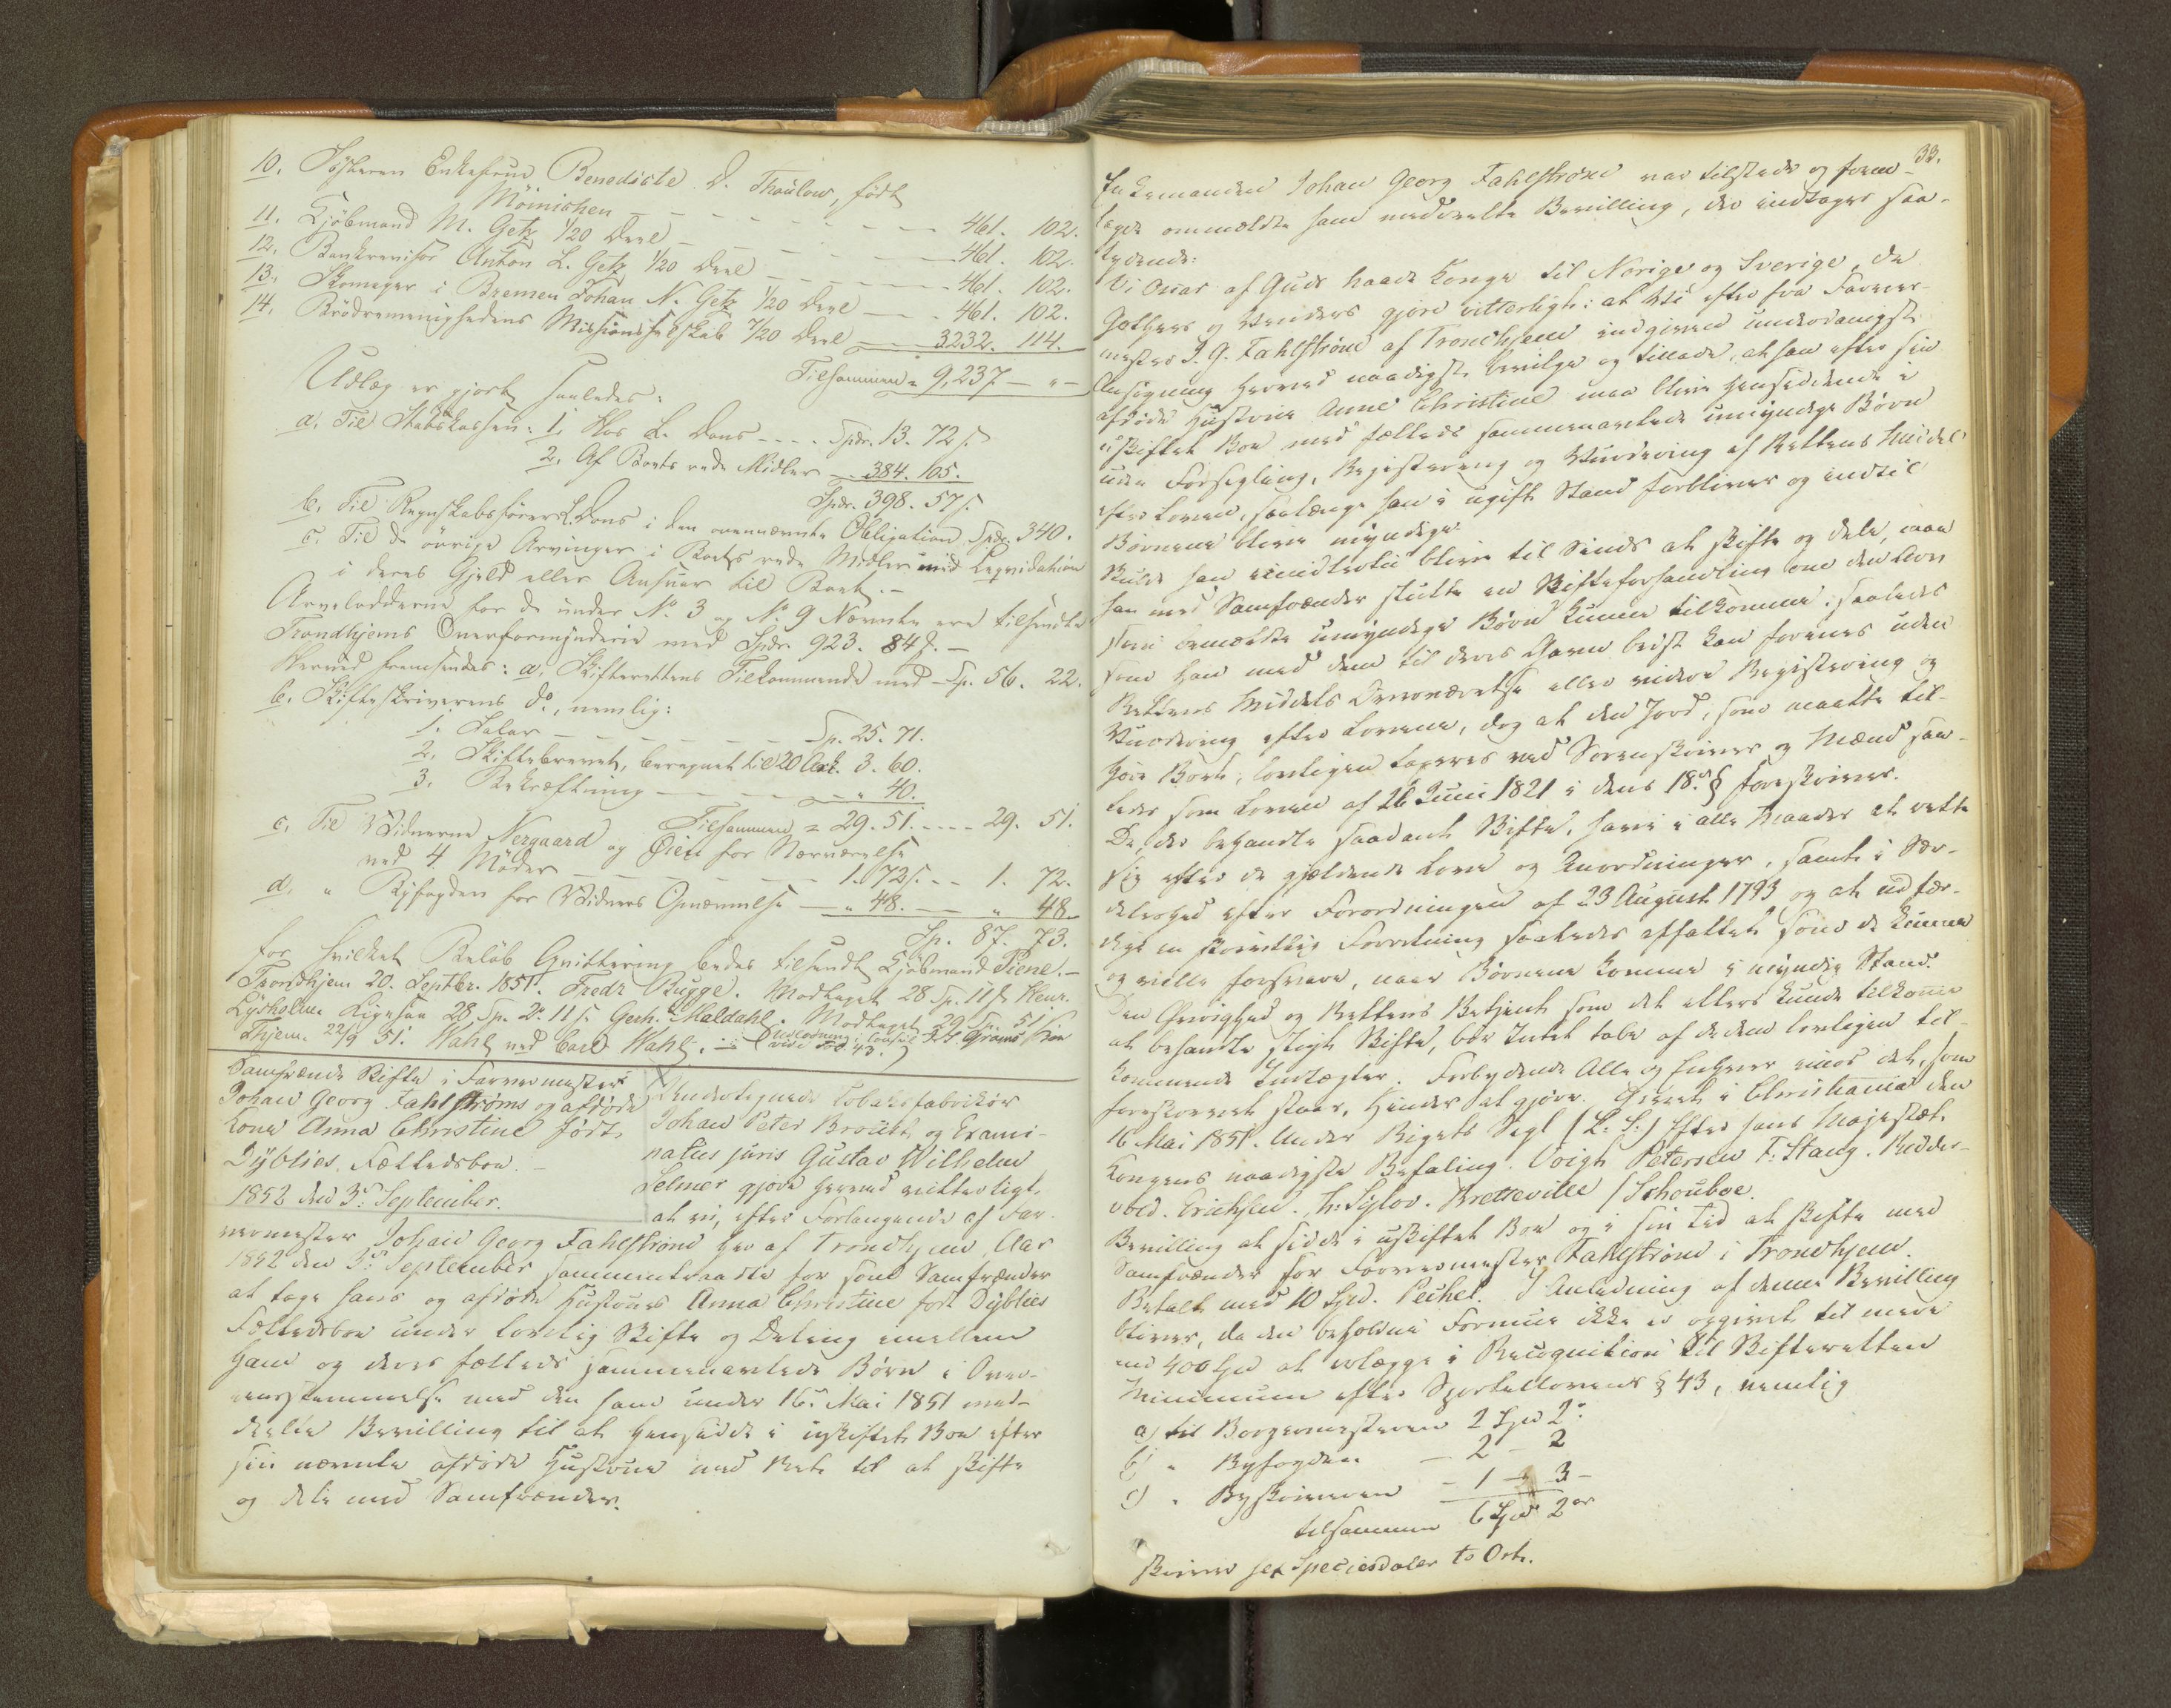 10. Søsteren Enkefrue Benedicte D. Thaulow, født
Möinichen - - - - - - - 461. 102.
11. Kjöbmand M. Getz 1/20 Deel - - - - - 461. 102.
12. Bankrevisor Anton L. Getz 1/20 Deel - - - - 461. 102.
13. Skomager i Bremen Johan N. Getz 1/20 Deel - - 461. 102.
14. Brödremenighedens Missionsselskab 7/20 Deel - 3232. 114.
Tilsammen = 9,237 - " -
Udlæg er gjort saaledes:
a. Til Stadskassen: 1. Hos L. Dons - - - - Spdr. 13. 72 s.
2. Af Boets rede Midler - - 384. 105.
Spdr. 398. 57 s.
b. Til Regnskabsförer L. Dons i den ovennævnte Obligation Spdr. 340.
c. Til de övrige Arvinger i Boets rede Midler mod Liqvidation
i deres Gjeld eller Ansvar til Boet. -
Arvelodderne for de under No. 3 og No. 9 Nævnte ere tilsendte
Trondhjems Overformynderie med Spdr. 923. 84 s. -
Herved fremsendes: a. Skifterettens Tilkommende med - Sp. 56. 22.
b. Skifteskriverens do., nemlig:
1. Salar - - - - - - - Sp. 25. 71.
2. Skiftebrevet, beregnet til 20 Ark. 3. 60.
3. Bekræftning - - - - - " 40.
Tilsammen = 29. 51. - - - - 29. 51.
c. Til Vidnerne Nergaard og Öien for Nærværelse
ved 4 Möder - - - - - - 1. 72 s. - - 1. 72.
d. " Byfogden for Vidners Opnævnelse - " 48. - - " 48.
Sp. 87. 73.
for hvilket Belöb Qvittering bedes tilsendt Kjöbmand Piene. -
Trondhjem 20. Septbr. 1851. Fredr. Bugge. Modtaget 28 Sp. 11 s. Henr.
Lysholm. Ligesaa 28 Sp. 2. 11 s. Gerh. Maldahl. Modtaget 29 Sp. 51
Thjem. 22/9 51. Wahl ved Carl Wahl.
vide Fol 43.
Samfrænde Skifte i Farvermester
Johan Georg Fahlströms og afdøde
Kone Anna Christine født
Dyblies Fælledsboe. -
1852 den 3die September.
Undertegnede Tobaksfabrikör
Johan Peter Broudt og Exami-
natus juris Gustav Wilhelm
Selmer gjøre herved vitterligt
at vi, efter Forlangende af Far-
vermester Johan Georg Fahlstrøm her af Trondhjem, Aar
1852 den 3die September sammentraadte for som Samfrænder
at tage hans og afdøde Hustrues Anna Christine født Dyblies
Fælledsboe under lovlig Skifte og Deling imellem
ham og deres fælleds sammenavlede Børn i Over-
eensstemmelse med den ham under 16de Mai 1851 med-
deelte Bevilling til at hensidde i uskiftet Boe efter
sin nævnte afdøde Hustrue med Ret til at skifte
og dele med Samfrænder.
33.
Enkemanden Johan Georg Fahlstrøm var tilstede og frem-
lagde ommeldte ham meddeelte Bevilling, der indtages saa-
lydende:
Vi Oscar af Guds Naade Konge til Norige og Sverige, de
Gothers og Venders gjøre vitterligt: at Vi efter fra Farver-
mester J. G. Fahlstrøm af Trondhjem indgiven underdanigst
Ansøgning herved naadigst bevilge og tillade, at han efter sin
afdøde Hustrue Anne Christine maa blive hensiddende i
uskiftet Boe med fælleds sammenavlede umyndige Børn
uden Forsegling, Registrering og Vurdering af Rettens Middel
efter Loven, saalænge han i ugift Stand forbliver og indtil
Børnene blive myndige.
Skulde han imidlertid blive til Sinds at skifte og dele, maa
han med Samfrænder slutte en Skifteforhandling om den Arv
som bemeldte umyndige Børn kunne tilkomme; saaledes
som han med dem til deres Gavn bedst kan forenes uden
Rettens Middels Overværelse eller videre Registrering og
Vurdering efter Lovene, dog at den Jord, som maatte til-
høre Boet, lovligen taxeres ved Sorenskriver og Mænd saa-
ledes som Loven af 26 Juni 1821 i dens 18de § foreskriver.
De, der behandle saadant Skifte, have i alle Maader at rette
sig efter de gjældende Love og Anordninger, samt i Sær-
deleshed efter Forordningen af 23 August 1793 og at udfær-
dige en skriftlig Forretning saaledes affattet som de kunne
og ville forsvare, naar Børnene komme i myndig Stand.
Den Øvrighed og Rettens Betjent som det ellers kunde tilkomme
at behandle sligt Skifte, bør Intet tabe af de dem lovligen til-
kommende Indtægter. Forbydende Alle og Enhver imod det, som
foreskrevet staar, Hinder at gjøre. Givet i Christiania den
16 Mai 1851. Under Rigets Segl (L. S.) Efter Hans Majestæt
Kongens naadigste Befaling. Voigt Petersen F. Stang. Ridder-
vold. Erichsen. Th. Sylov. Bretteville / Schouboe.
Bevilling at sidde i uskiftet Boe og i sin Tid at skifte med
Samfrænder for Farvermester Fahlstrøm i Trondhjem.
Betalt med 10 Spd. Pechel. I Anledning af denne Bevilling
bliver, da den beholdne Formue ikke er opgivet til mere
end 400 Spd at erlægge i Recognition til Skifteretten
Minimum efter Sportellovens § 43, nemlig
a) til Borgermesteren 2 Spd 2 "
b) " Byfogden - 2 - 2
c) " Byskriveren - 1 - 3 -
tilsammen 6 Spd 2 or
skriver sex Speciesdaler to Ort.